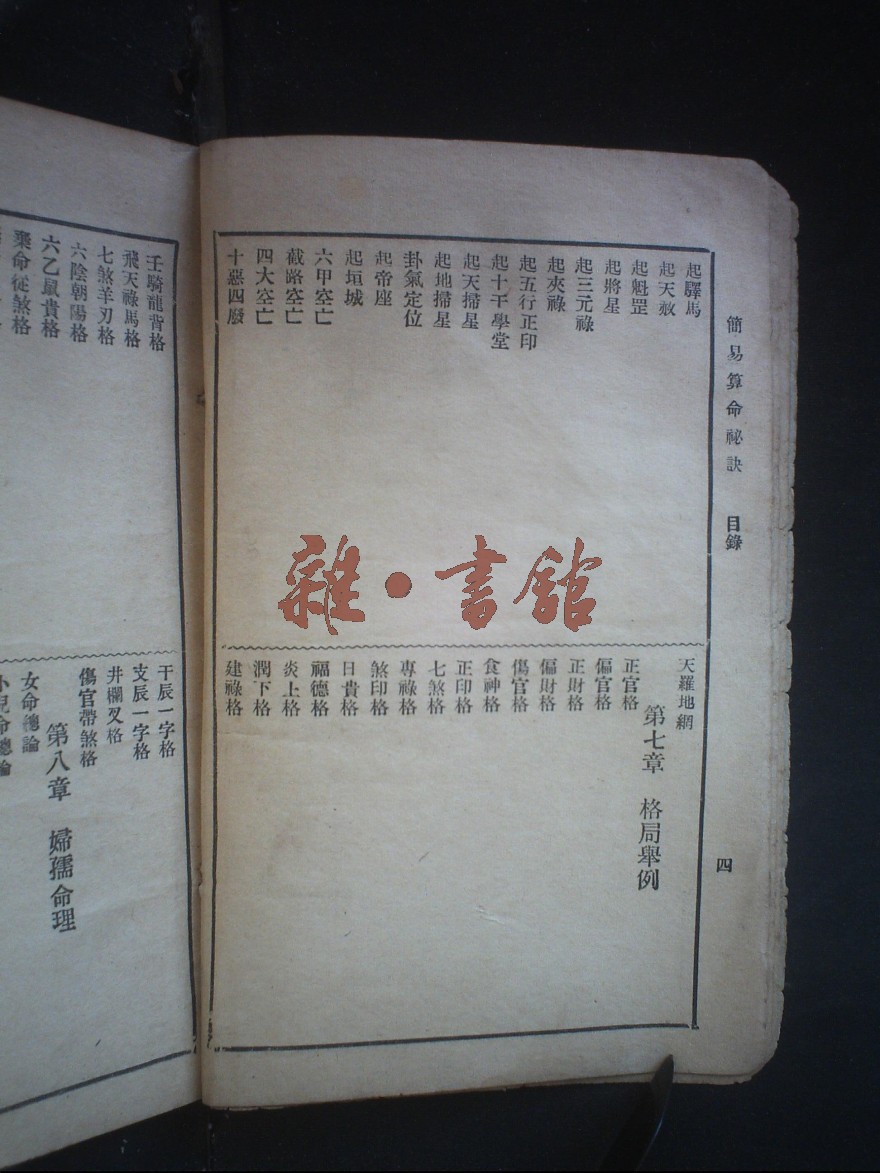 簡易算命祕訣 目錄
四
起驛馬
起天赦
起魁罡
起將星
起三元祿
起夾祿
起五行正印
起十干學堂
起天掃星
起地掃星
卦氣定位
起帝座
起垣城
六甲空亡
截路空亡
四大空亡
十惡四廢
天羅地網
第七章 格局舉例
正官格
偏官格
正財格
偏財格
傷官格
食神格
七煞格
正印格
專祿格
煞印格
日貴格
福德格
炎上格
潤下格
建祿格
壬騎龍背格
飛天祿馬格
七煞羊刃格
六陰朝陽格
六乙鼠貴格
棄命從煞格
干辰一字格
支辰一字格
井欄叉格
傷官帶煞格
第八章 婦孺命理
女命總論
小兒命總論
雜·書館